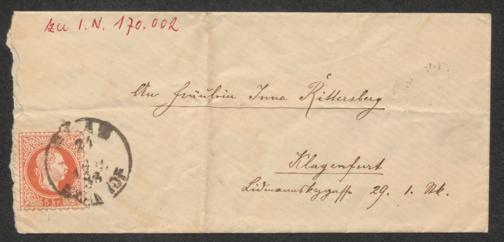 zu I.N. 170.002
An Fräulein Inna Rittersberg
Klagenfurt
Lidmannskygasse 29. 1. Stk.
5 kr